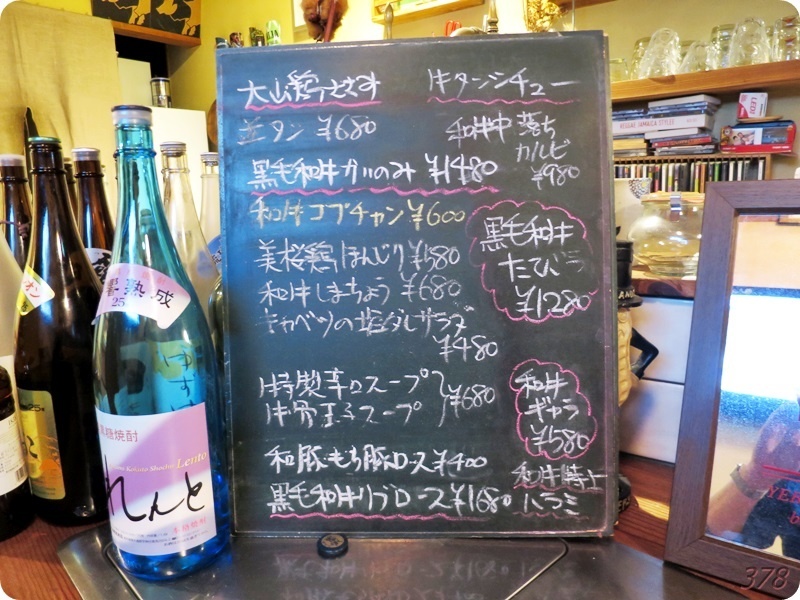 大山鶏ささみ
牛タンシチュー
並タン ¥680
和牛中落ち
カルビ
¥980
黒毛和牛かいのみ ¥1480
和牛コブチャン ¥600
黒毛和牛
¥1280
美桜鶏ぼんじり ¥580
和牛しまちょう ¥680
キャベツの塩だしサラダ
¥480
牛特製辛口スープ
牛骨玉子スープ
¥680
和牛
ギャラ
¥580
和豚もち豚ロース ¥400
黒毛和牛リブロース ¥1680
和牛特上
ハラミ
熟成
25
黒糖焼酎
Amami Kokuto Shochu Lento
れんと
REGGAE JAMAICA STYLE
378